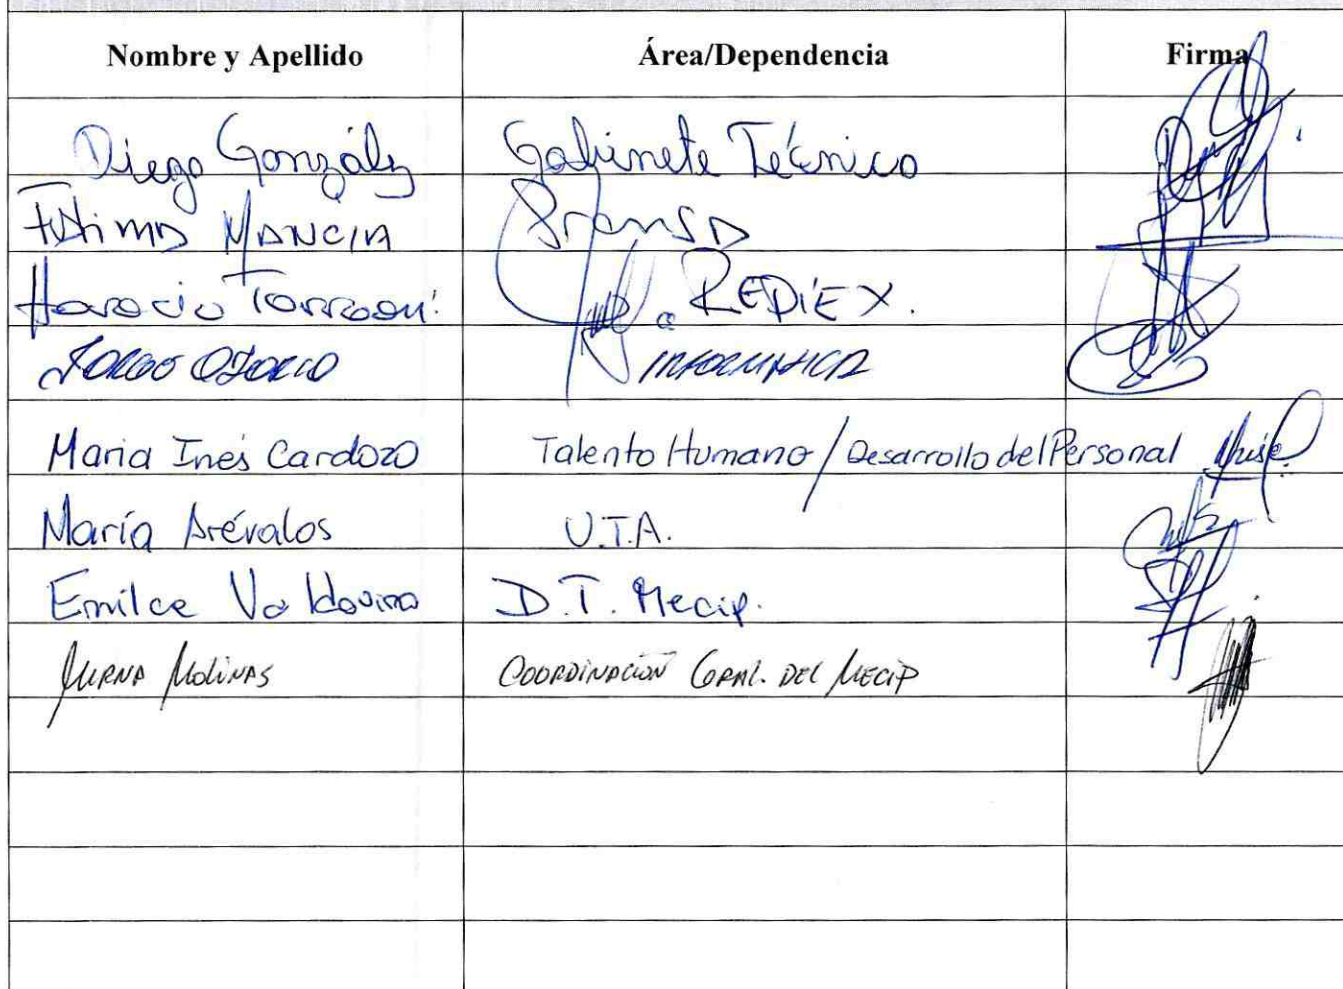 Nombre y Apellido Área/Dependencia Firma
Diego González Gabinete Técnico
Fátima MANCIA Prensa
Horacio REDIEX.
JORGE OSORIO INFORMATICA
Maria Inés Cardozo Talento Humano / Desarrollo del Personal
María Arévalos U.T.A.
Emilce Valdovino D.T. Mecip.
MIRNA MOLINAS COORDINACIÓN GRAL. DEL MECIP